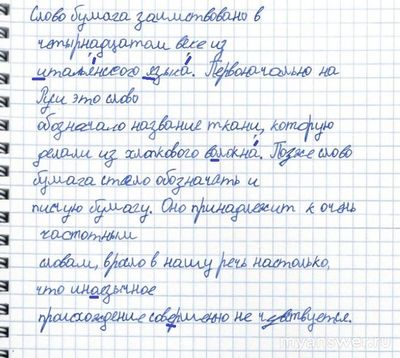 Слово бумага заимствовано в
четырнадцатом веке из
итальянского языка. Первоначально на
Руси это слово
обозначало название ткани, которую
делали из хлопкового волокна. Позже слово
бумага стало обозначать и
писчую бумагу. Оно принадлежит к очень
частотным
словам, вросло в нашу речь настолько,
что иноязычное
происхождение совершенно не чувствуется.
myanswer.ru